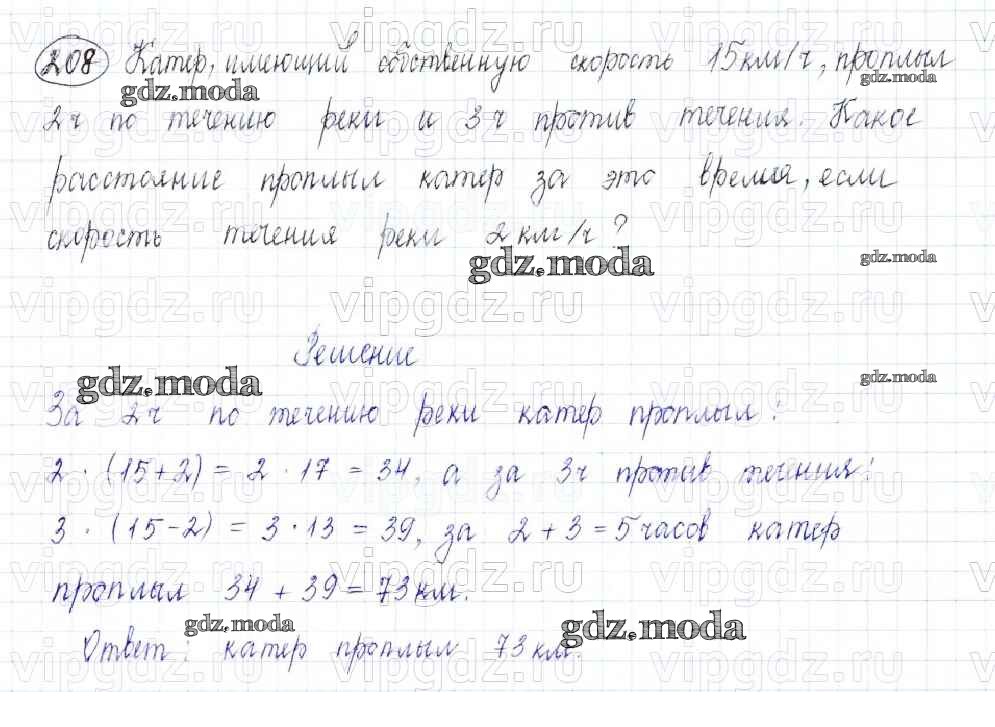 208 Катер, имеющий собственную скорость 15 км/ч, проплыл
2ч по течению реки и 3ч против течения. Какое
расстояние проплыл катер за это время, если
скорость течения реки 2 км/ч?
Решение
За 2ч по течению реки катер проплыл:
2 · (15+2) = 2 · 17 = 34, а за 3ч против течения:
3 · (15-2) = 3 · 13 = 39, за 2 + 3 = 5 часов катер
проплыл 34 + 39 = 73 км.
Ответ: катер проплыл 73 км.
gdz.moda
gdz.moda
gdz.moda
gdz.moda
gdz.moda
gdz.moda
gdz.moda
gdz.moda
vipgdz.ru